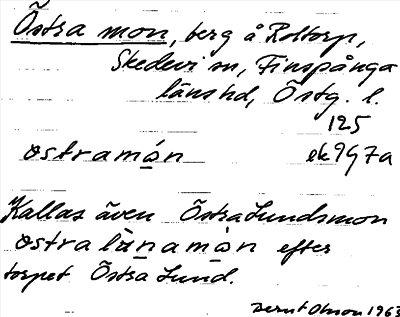 Östra mon, berg å Roltorp,
Skedevi sn, Finspånga
länshd, Östg. l.
125
ostramo̱n ek 9G7a
Kallas även Östra Lundsmon
ostra lùnamòn efter
torpet Östra Lund.
Bernt Olsson 1963